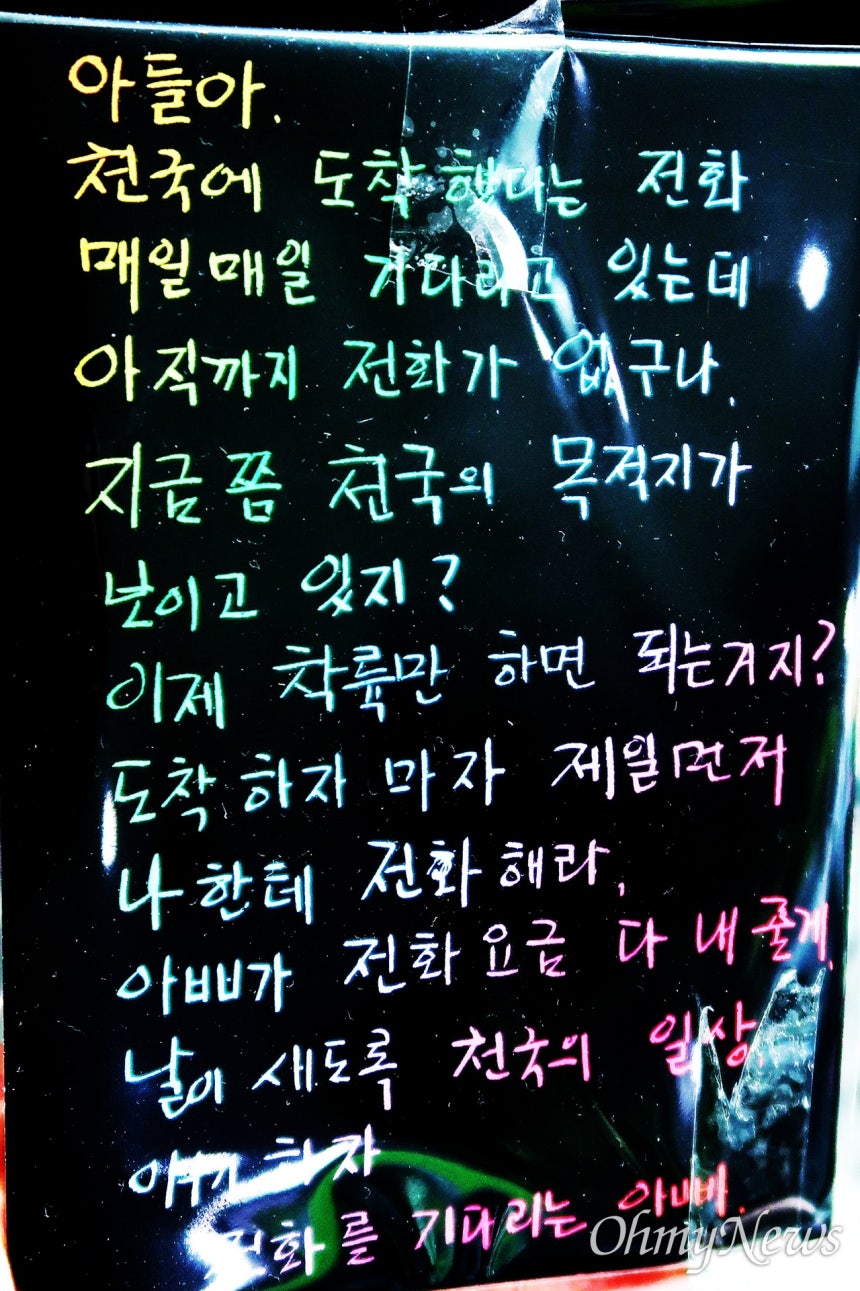 아들아.
천국에 도착했다는 전화
매일매일 기다리고 있는데
아직까지 전화가 없구나.
지금쯤 천국의 목적지가
보이고 있지?
이제 착륙만 하면 되는거지?
도착하자 마자 제일먼저
나한테 전화해라.
아빠가 전화요금 다 내줄게.
날이 새도록 천국의 일상
하자
전화를 기다리는 아빠.
OhmyNews